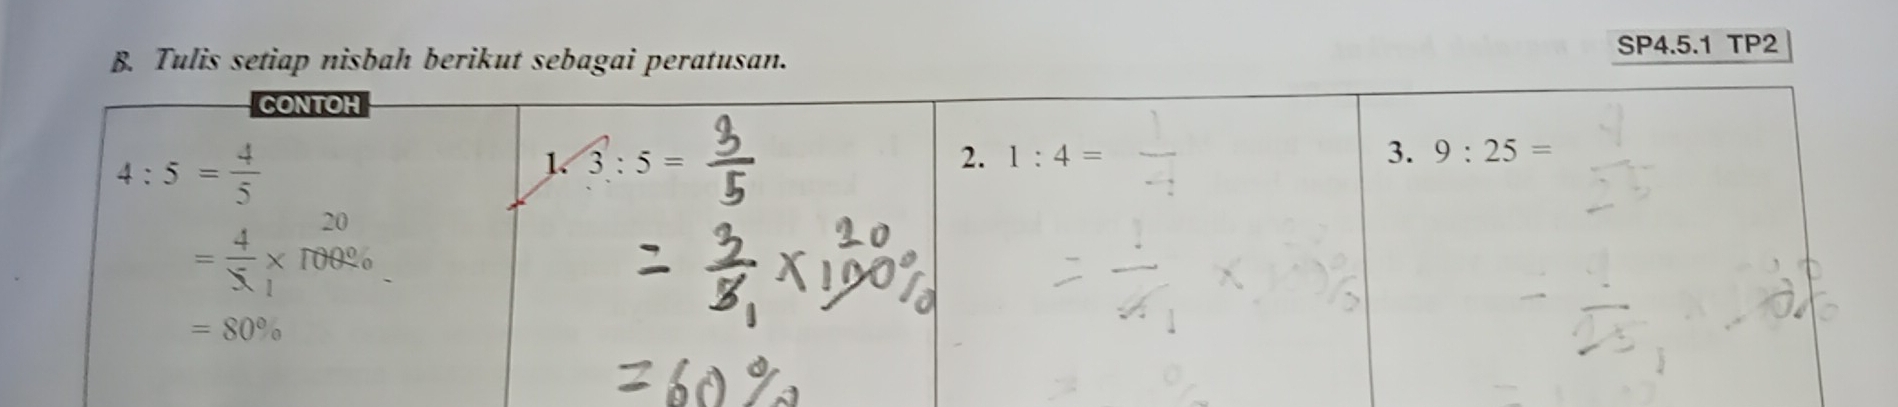 B. Tulis setiap nisbah berikut sebagai peratusan.
SP4.5.1 TP2
CONTOH
4 : 5 = 4/5
= 4/5 1 × 100% 20
= 80%
1. 3 : 5 = 3/5
= 3/5 1 × 100% 20
= 60%
2. 1 : 4 = 1/4
3. 9 : 25 =